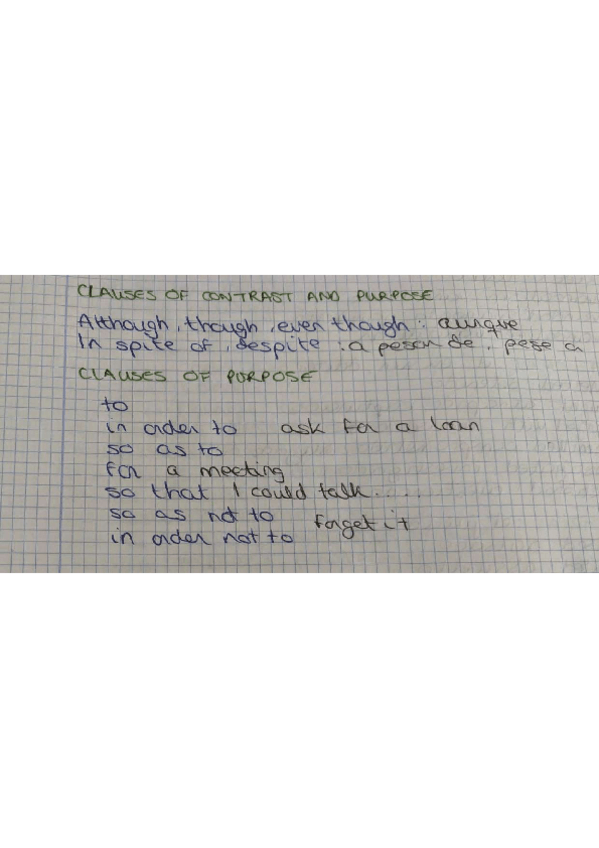 CLAUSES OF CONTRAST AND PURPOSE
Although, though, even though: aunque
In spite of, despite: a pesar de, pese a
CLAUSES OF PURPOSE
to
in order to ask for a loan
so as to
for a meeting
so that I could talk.....
so as not to forget it
in order not to